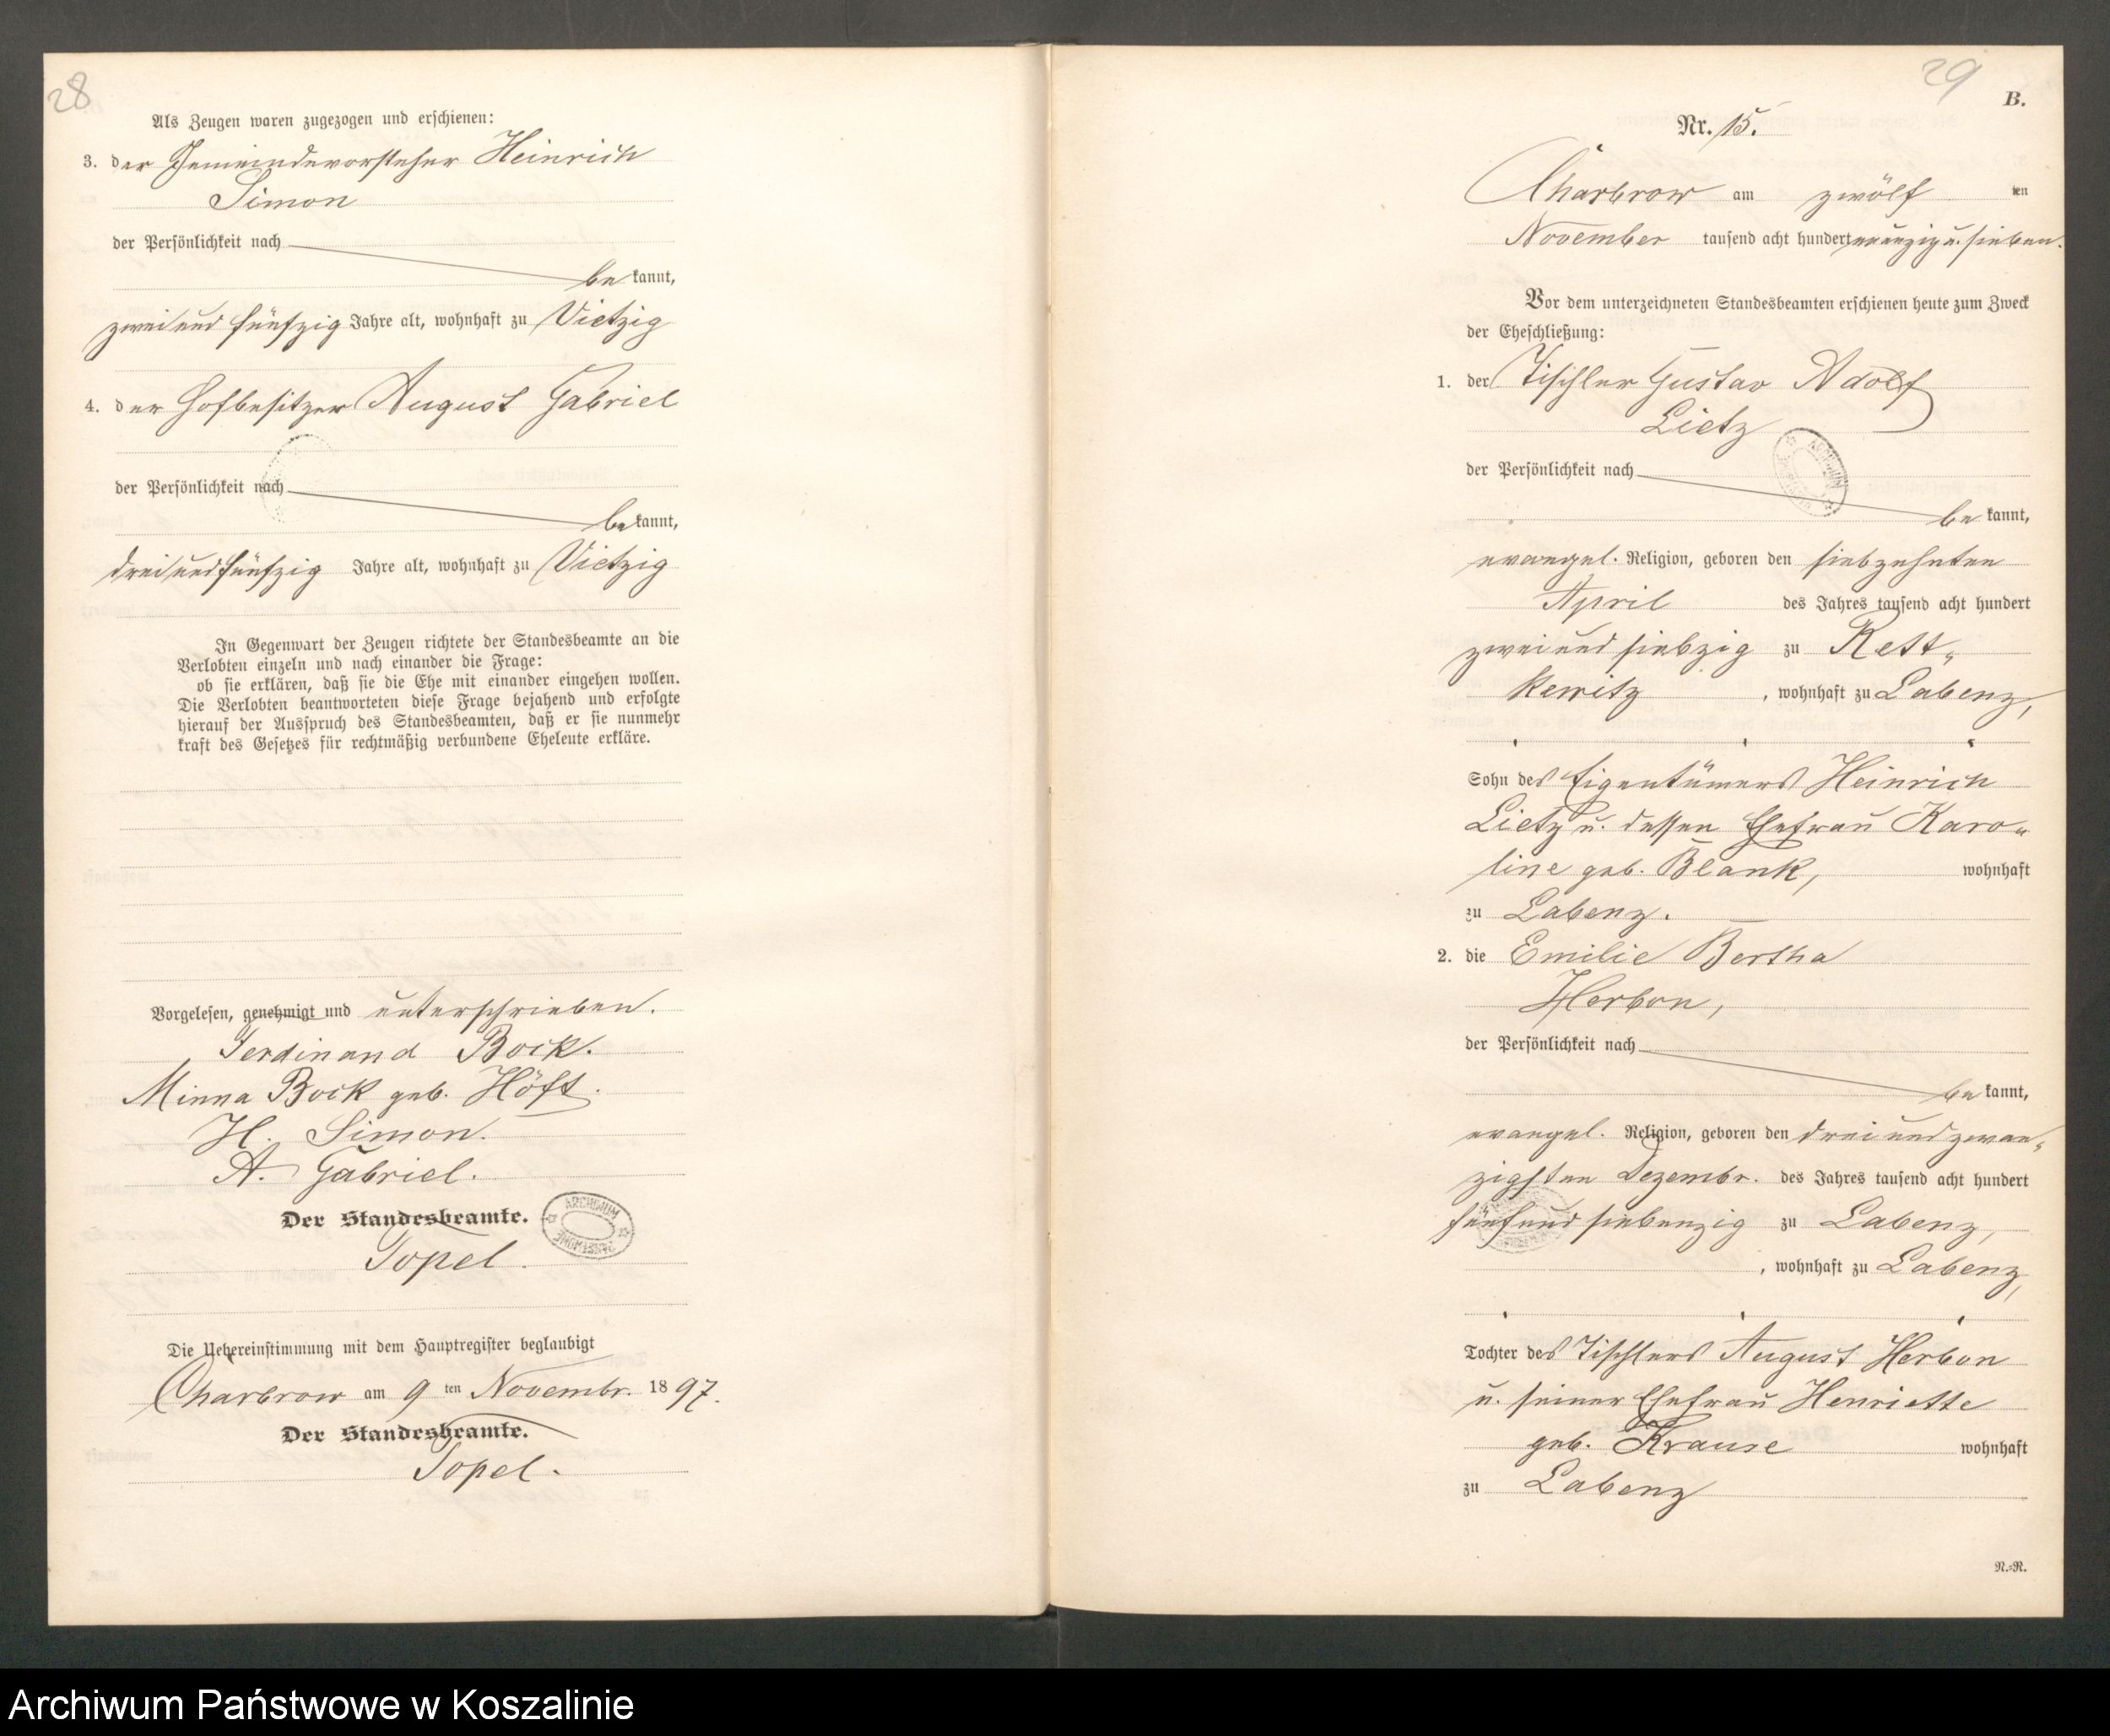 28
Als Zeugen waren zugezogen und erschienen:
3. der Gemeindevorsteher Heinrich
Simon
der Persönlichkeit nach
be kannt,
zweiund fünfzig Jahre alt, wohnhaft zu Vietzig
4. der Hofbesitzer August Gabriel
der Persönlichkeit nach
be kannt,
dreiundfünfzig Jahre alt, wohnhaft zu Vietzig
In Gegenwart der Zeugen richtete der Standesbeamte an die
Verlobten einzeln und nach einander die Frage:
ob sie erklären, daß sie die Ehe mit einander eingehen wollen.
Die Verlobten beantworteten diese Frage bejahend und erfolgte
hierauf der Ausspruch des Standesbeamten, daß er sie nunmehr
kraft des Gesetzes für rechtmäßig verbundene Eheleute erkläre.
Vorgelesen, genehmigt und unterschrieben.
Ferdinand Bock.
Minna Bock geb. Höft.
H. Simon.
A. Gabriel.
Der Standesbeamte.
ARCHIWUM PAŃSTWOWE
Topel.
Die Uebereinstimmung mit dem Hauptregister beglaubigt
Charbrow am 9 ten Novembr. 18 97.
Der Standesbeamte.
Topel.
29
B.
Nr. 15.
Charbrow am zwölf ten
November tausend acht hundert neunzig u. sieben.
Vor dem unterzeichneten Standesbeamten erschienen heute zum Zweck
der Eheschließung:
1. der Tischler Gustav Adolf
Lietz
der Persönlichkeit nach
be kannt,
evangel. Religion, geboren den siebzehnten
April des Jahres tausend acht hundert
zweiund siebzig zu Rett-
kewitz, wohnhaft zu Labenz,
Sohn des Eigentümers Heinrich
Lietz u. dessen Ehefrau Karo-
line geb. Blank, wohnhaft
zu Labenz.
2. die Emilie Bertha
Herbon,
der Persönlichkeit nach
be kannt,
evangel. Religion, geboren den dreiundzwan-
zigsten Dezembr. des Jahres tausend acht hundert
fünfund siebenzig zu Labenz,
, wohnhaft zu Labenz,
Tochter des Tischlers August Herbon
u. seiner Ehefrau Henriette
geb. Krause wohnhaft
zu Labenz
N.=N.
Archiwum Państwowe w Koszalinie